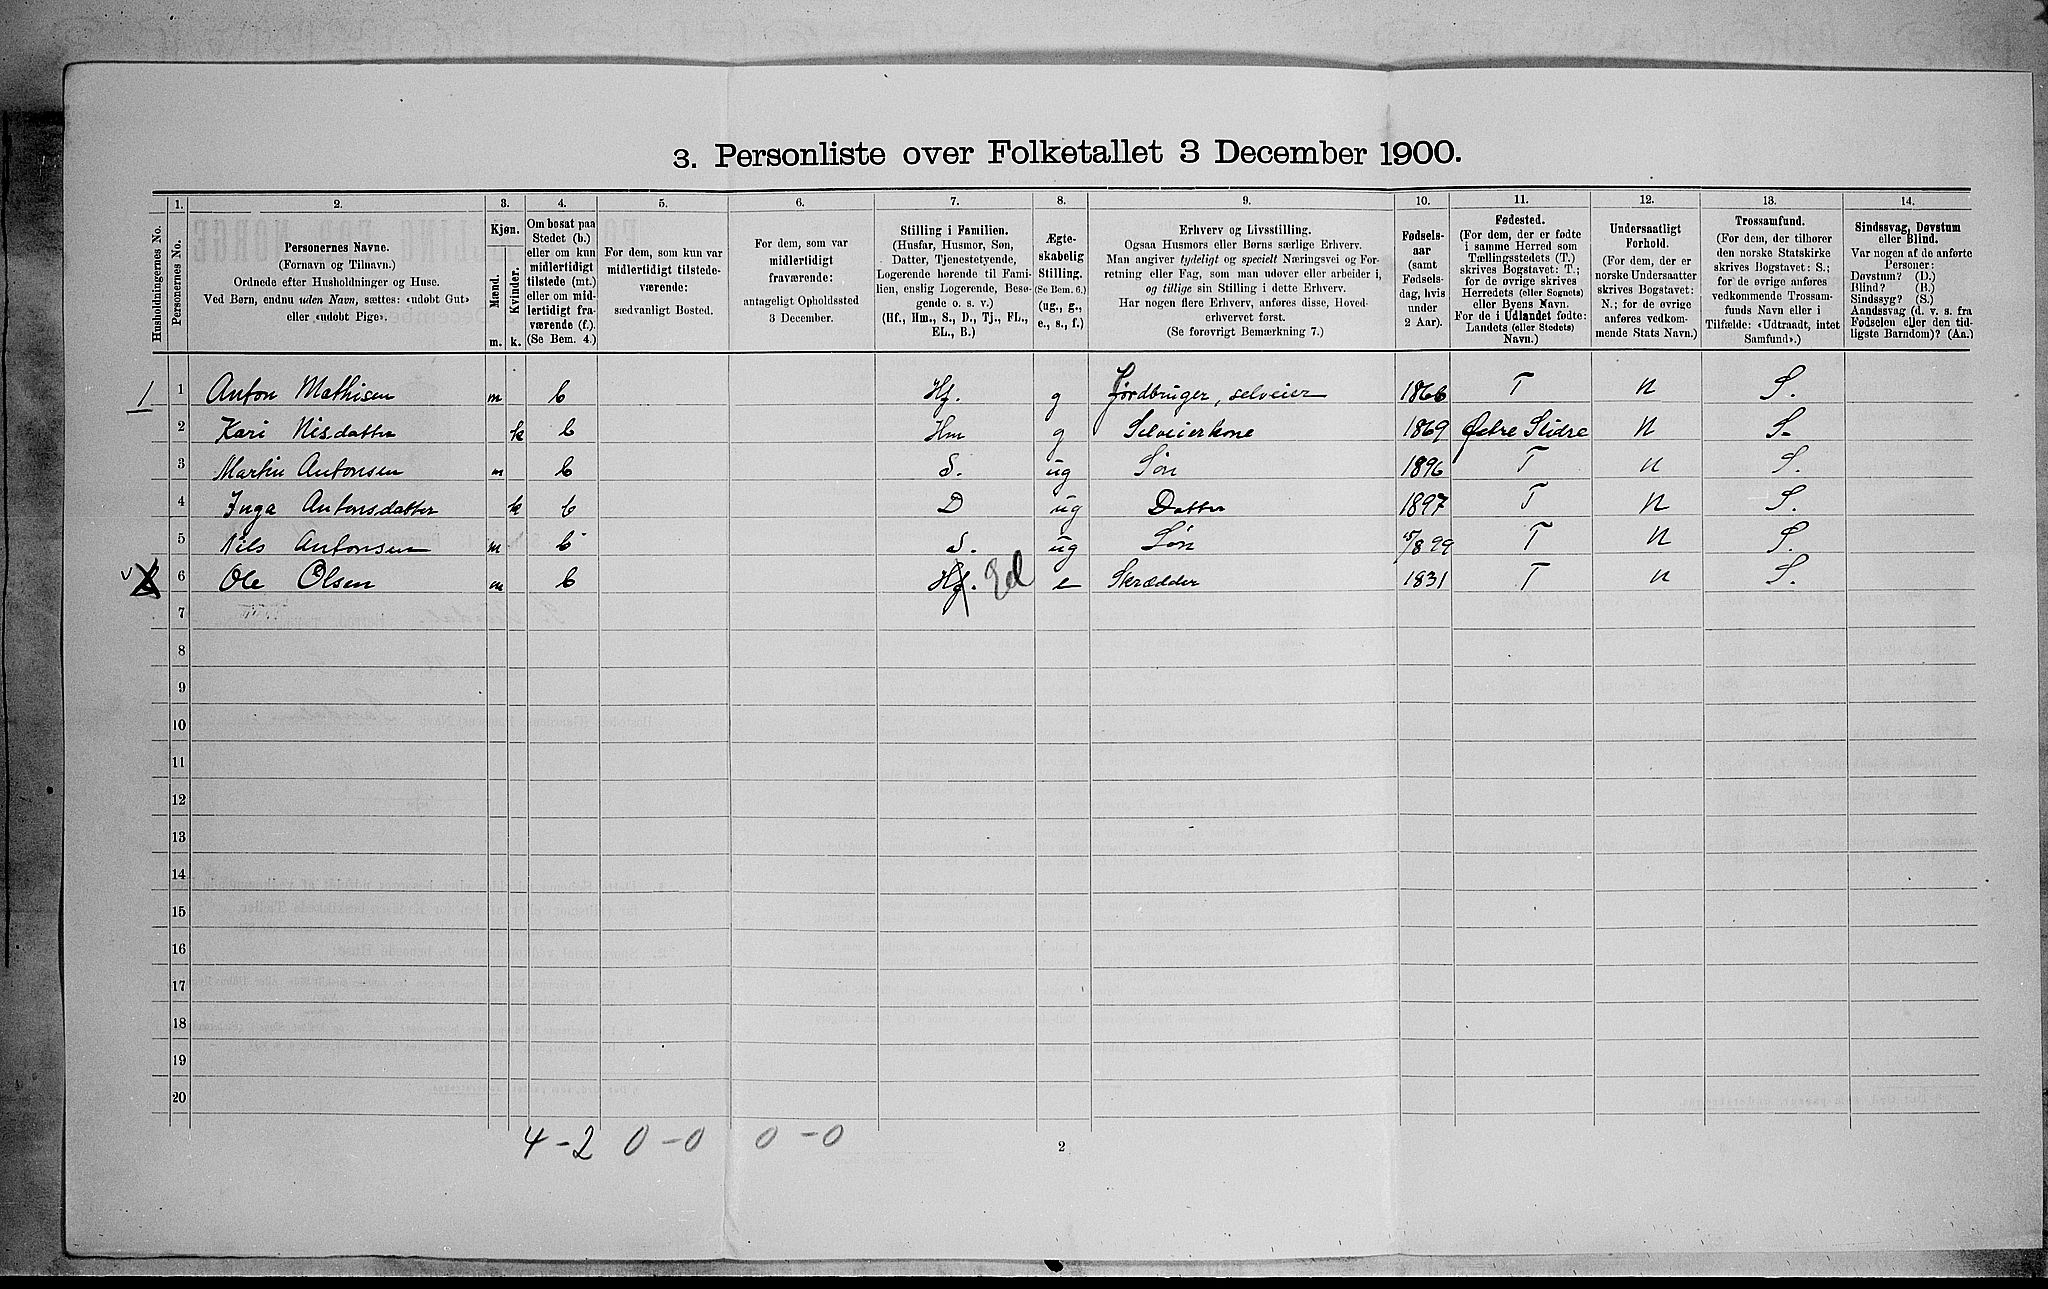 3. Personliste over Folketallet 3 December 1900.
Husholdningernes No.
1.
Personernes No.
2.
Personernes Navne.
(Fornavn og Tilnavn.)
Ordnede efter Husholdninger og Huse.
Ved Børn, endnu uden Navn, sættes: «udøbt Gut»
eller «udøbt Pige».
3.
Kjøn.
Mænd.
Kvinder.
m. k.
4.
Om bosat paa
Stedet (b.)
eller om kun
midlertidigt
tilstede (mt.)
eller om mid-
lertidigt fra-
værende (f.).
(Se Bem. 4.)
5.
For dem, som kun var
midlertidigt tilstede-
værende:
sædvanligt Bosted.
6.
For dem, som var
midlertidigt
fraværende:
antageligt Opholdssted
3 December.
7.
Stilling i Familien.
(Husfar, Husmor, Søn,
Datter, Tjenestetyende,
Logerende hørende til Fami-
lien, enslig Logerende, Besø-
gende o. s. v.)
(Hf., Hm., S., D., Tj., FL.,
EL., B.)
8.
Ægte-
skabelig
Stilling.
(Se Bem. 6.)
(ug., g.,
e., s., f.)
9.
Erhverv og Livsstilling.
Ogsaa Husmors eller Børns særlige Erhverv.
Man angiver tydeligt og specielt Næringsvei og For-
retning eller Fag, som man udøver eller arbeider i,
og tillige sin Stilling i dette Erhverv.
Har nogen flere Erhverv, anføres disse, Hoved-
erhvervet først.
(Se forøvrigt Bemærkning 7.)
10.
Fødsels-
aar
(samt
Fødsels-
dag, hvis
under
2 Aar).
11.
Fødested.
(For dem, der er fødte
i samme Herred som
Tællingsstedets (T.)
skrives Bogstavet: T.;
for de øvrige skrives
Herredets (eller Sognets)
eller Byens Navn.
For de i Udlandet fødte:
Landets (eller Stedets)
Navn.)
12.
Undersaatligt
Forhold.
(For dem, der er
norske Undersaatter
skrives Bogstavet:
N.; for de øvrige
anføres vedkom-
mende Stats Navn.)
13.
Trossamfund.
(For dem, der tilhører
den norske Statskirke
skrives Bogstavet: S.;
for de øvrige anføres
vedkommende Trossam-
funds Navn eller i
Tilfælde: «Udtraadt, intet
Samfund».)
14.
Sindssvag, Døvstum
eller Blind.
Var nogen af de anførte
Personer:
Døvstum? (D.)
Blind? (B.)
Sindssyg? (S.)
Aandssvag (d. v. s. fra
Fødselen eller den tid-
ligste Barndom)? (Aa.)
1 1 Anton Mathisen m b Hf. g Jordbruger, selveier 1866 T N S.
2 Kari Nisdatter k b Hm g Selveierkone 1869 Østre Slidre N S.
3 Martin Antonsen m b S. ug Søn 1896 T N S.
4 Inga Antonsdatter k b D ug Datter 1897 T N S.
5 Nils Antonsen m b S. ug Søn 15/8 99 T N S.
6 Ole Olsen m b Hf. El e Skrædder 1831 T N S.
7
8
9
10
11
12
13
14
15
16
17
18
19
20
4-2 0-0 0-0
2